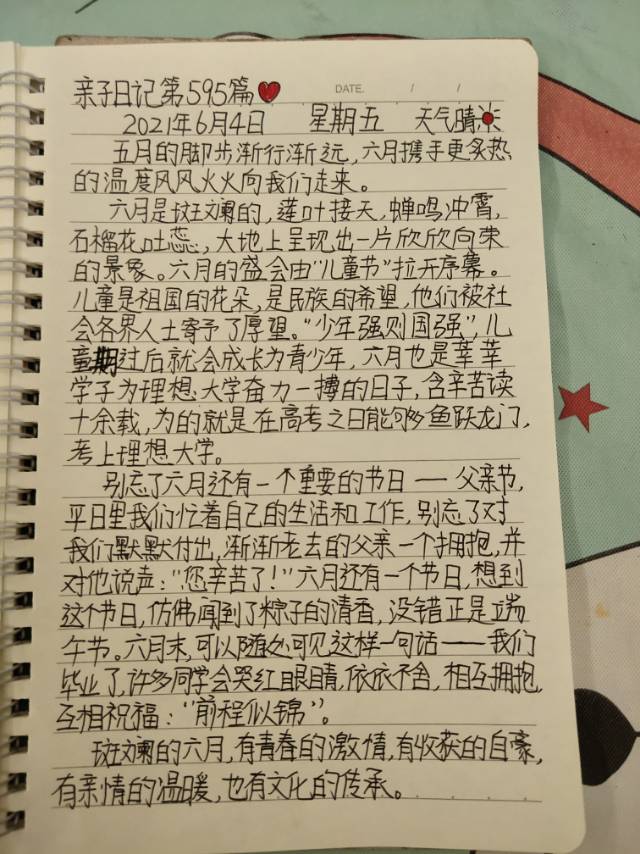 亲子日记第595篇
DATE. / /
2021年6月4日 星期五 天气晴
五月的脚步渐行渐远,六月携手更炙热
的温度风风火火向我们走来。
六月是斑斓的,莲叶接天,蝉鸣冲霄,
石榴花吐蕊,大地上呈现出一片欣欣向荣
的景象。六月的盛会由“儿童节”拉开序幕。
儿童是祖国的花朵,是民族的希望,他们被社
会各界人士寄予了厚望。“少年强则国强”儿
童期过后就会成长为青少年,六月也是莘莘
学子为理想大学奋力一搏的日子,含辛苦读
十余载,为的就是在高考之日能够鱼跃龙门,
考上理想大学。
别忘了六月还有一个重要的节日——父亲节,
平日里我们忙着自己的生活和工作,别忘了对
我们默默付出,渐渐老去的父亲一个拥抱,并
对他说声:“您辛苦了!”六月还有一个节日,想到
这个节日,仿佛闻到了粽子的清香,没错正是端
午节。六月末,可以随处可见这样一句话——我们
毕业了,许多同学会哭红眼睛,依依不舍,相互拥抱,
互相祝福:“前程似锦”。
斑斓的六月,有青春的激情,有收获的自豪,
有亲情的温暖,也有文化的传承。